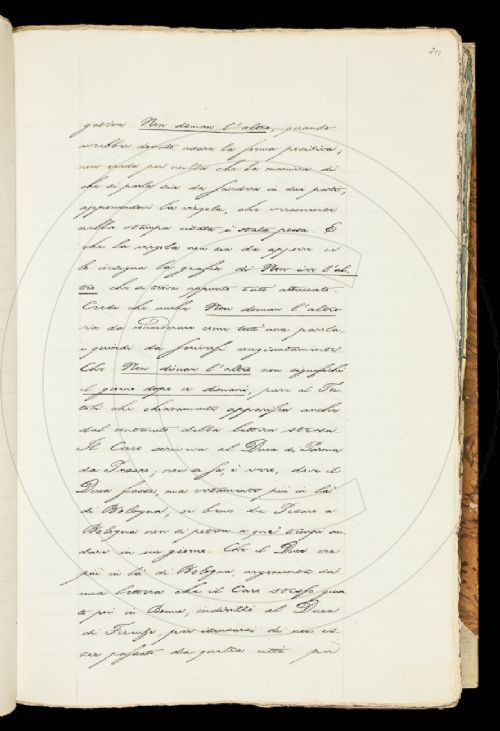 211
gativa Non doman l'altro, quando
avrebbe dovuto usare la forma positiva,
non credo per nulla che la maniera di
che si parla sia da fendersi in due parti,
apponendovi la virgola, che veramente
nella stampa citata è stata posta. E
che la virgola non sia da apporvi ce
lo insegna la grafia di Non ier l'al
tro che si trova appunto tutto attaccato.
Credo che anche Non doman l'altro
sia da considerare come tutta una parola
e quindi da scriversi congiuntamente.
Che Non doman l'altro non significhi
il giorno dopo a domani, pare al Tor
toli che chiaramente apparisca anche
dal contenuto della lettera stessa.
Il Caro scriveva al Duca di Parma
da Pesaro; non si sa, è vero, dove il
Duca fosse, ma certamente più in là
di Bologna, e bene da Pesaro a
Bologna non si poteva a que' tempi an
dare in un giorno. Che il Duca era
più in là di Bologna, argomento da
una lettera che il Caro stesso
in Roma, al Duca
di per di non es
sere passato da quella città per